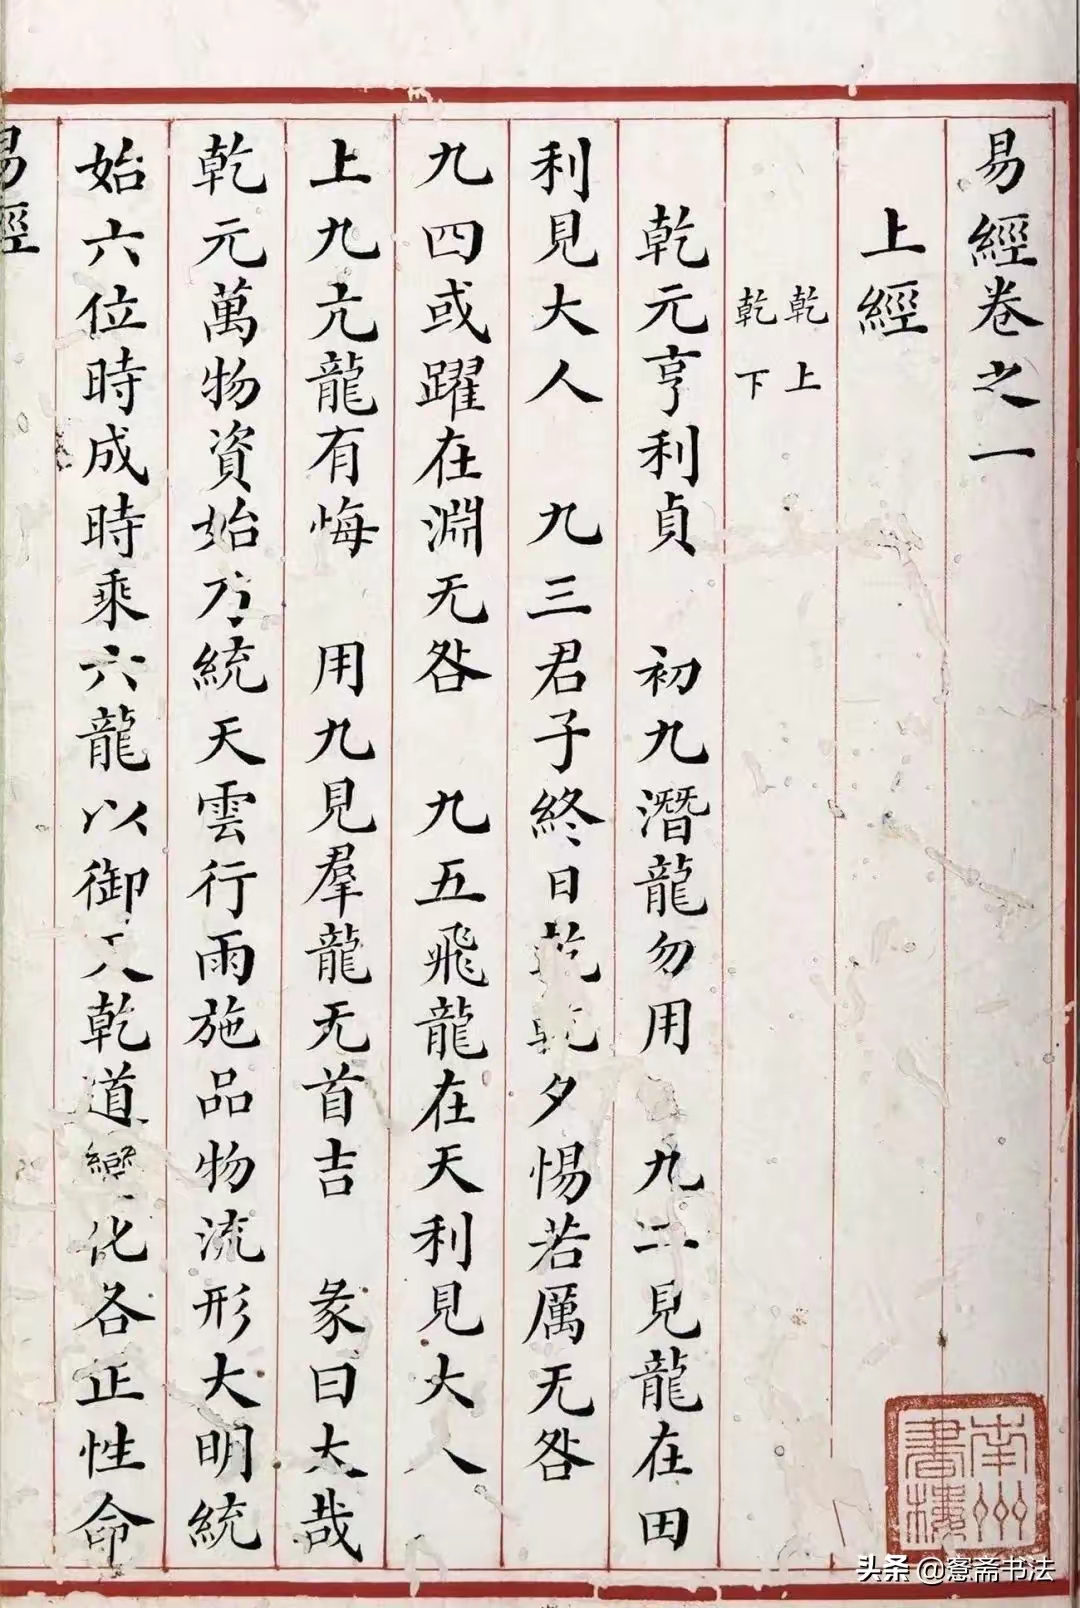 易經卷之一
上經
乾上
乾下
乾元亨利貞　初九潛龍勿用　九二見龍在田
利見大人　九三君子終日乾乾夕惕若厲无咎
九四或躍在淵无咎　九五飛龍在天利見大人
上九亢龍有悔　用九見羣龍无首吉　彖曰大哉
乾元萬物資始乃統天雲行雨施品物流形大明統
始六位時成時乘六龍以御天乾道變化各正性命
易經
南州書樓
头条 @愙斋书法